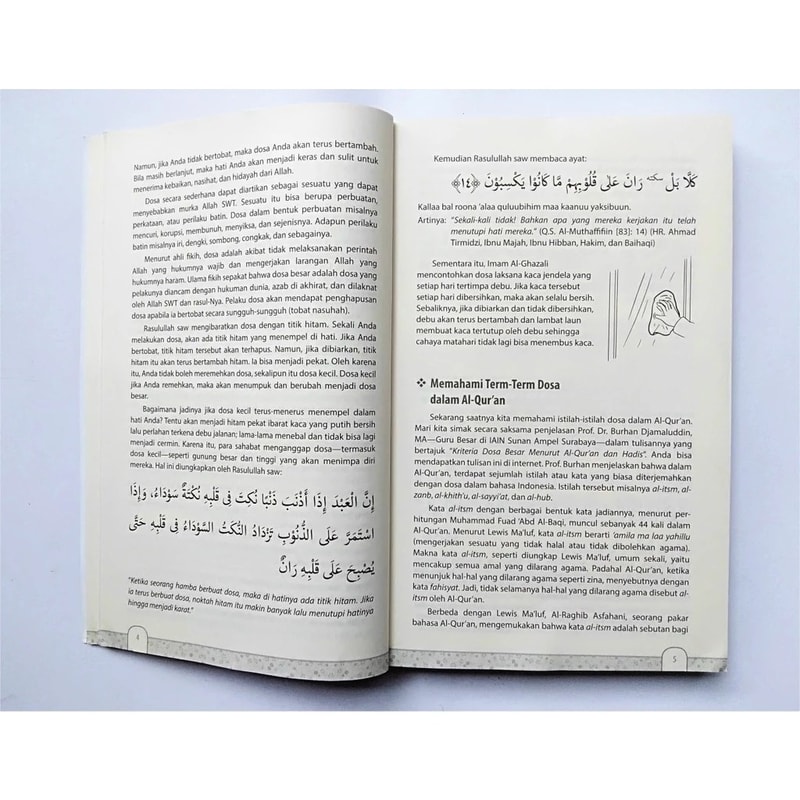 Namun, jika Anda tidak bertobat, maka dosa Anda akan terus bertambah.
Bila masih berlanjut, maka hati Anda akan menjadi keras dan sulit untuk
menerima kebaikan, nasihat, dan hidayah dari Allah.
Dosa secara sederhana dapat diartikan sebagai sesuatu yang dapat
menyebabkan murka Allah SWT. Sesuatu itu bisa berupa perbuatan,
perkataan, atau perilaku batin. Dosa dalam bentuk perbuatan misalnya
mencuri, korupsi, membunuh, menyiksa, dan sejenisnya. Adapun perilaku
batin misalnya iri, dengki, sombong, congkak, dan sebagainya.
Menurut ahli fikih, dosa adalah akibat tidak melaksanakan perintah
Allah yang hukumnya wajib dan mengerjakan larangan Allah yang
hukumnya haram. Ulama fikih sepakat bahwa dosa besar adalah dosa yang
pelakunya diancam dengan hukuman dunia, azab di akhirat, dan dilaknat
oleh Allah SWT dan rasul-Nya. Pelaku dosa akan mendapat penghapusan
dosa apabila ia bertobat secara sungguh-sungguh (tobat nasuhah).
Rasulullah saw mengibaratkan dosa dengan titik hitam. Sekali Anda
melakukan dosa, akan ada titik hitam yang menempel di hati. Jika Anda
bertobat, titik hitam tersebut akan terhapus. Namun, jika dibiarkan, titik
hitam itu akan terus bertambah hitam. Ia bisa menjadi pekat. Oleh karena
itu, Anda tidak boleh meremehkan dosa, sekalipun itu dosa kecil. Dosa kecil
jika Anda remehkan, maka akan menumpuk dan berubah menjadi dosa
besar.
Bagaimana jadinya jika dosa kecil terus-menerus menempel dalam
hati Anda? Tentu akan menjadi hitam pekat ibarat kaca yang putih bersih
lalu perlahan terkena debu jalanan; lama-lama menebal dan tidak bisa lagi
menjadi cermin. Karena itu, para sahabat menganggap dosa—termasuk
dosa kecil—seperti gunung besar dan tinggi yang akan menimpa diri
mereka. Hal ini diungkapkan oleh Rasulullah saw:
إِنَّ الْعَبْدَ إِذَا أَذْنَبَ ذَنْبًا نُكِتَ فِي قَلْبِهِ نُكْتَةٌ سَوْدَاءُ، وَإِذَا
اسْتَمَرَّ عَلَى الذُّنُوْبِ تَزْدَادُ النُّكَتُ السَّوْدَاءُ فِي قَلْبِهِ حَتَّى
يُصْبِحَ عَلَى قَلْبِهِ رَانٌ
"Ketika seorang hamba berbuat dosa, maka di hatinya ada titik hitam. Jika
ia terus berbuat dosa, noktah hitam itu makin banyak lalu menutupi hatinya
hingga menjadi karat."
4
Kemudian Rasulullah saw membaca ayat:
كَلَّا بَلْ ۜ رَانَ عَلٰى قُلُوْبِهِمْ مَّا كَانُوْا يَكْسِبُوْنَ ﴿١٤﴾
Kallaa bal roona 'alaa quluubihim maa kaanuu yaksibuun.
Artinya: "Sekali-kali tidak! Bahkan apa yang mereka kerjakan itu telah
menutupi hati mereka." (Q.S. Al-Muthaffifiin [83]: 14) (HR. Ahmad
Tirmidzi, Ibnu Majah, Ibnu Hibban, Hakim, dan Baihaqi)
Sementara itu, Imam Al-Ghazali
mencontohkan dosa laksana kaca jendela yang
setiap hari tertimpa debu. Jika kaca tersebut
setiap hari dibersihkan, maka akan selalu bersih.
Sebaliknya, jika dibiarkan dan tidak dibersihkan,
debu akan terus bertambah dan lambat laun
membuat kaca tertutup oleh debu sehingga
cahaya matahari tidak lagi bisa menembus kaca.
❖ Memahami Term-Term Dosa
dalam Al-Qur'an
Sekarang saatnya kita memahami istilah-istilah dosa dalam Al-Qur'an.
Mari kita simak secara saksama penjelasan Prof. Dr. Burhan Djamaluddin,
MA—Guru Besar di IAIN Sunan Ampel Surabaya—dalam tulisannya yang
bertajuk "Kriteria Dosa Besar Menurut Al-Qur'an dan Hadis". Anda bisa
mendapatkan tulisan ini di internet. Prof. Burhan menjelaskan bahwa dalam
Al-Qur'an, terdapat sejumlah istilah atau kata yang biasa diterjemahkan
dengan dosa dalam bahasa Indonesia. Istilah tersebut misalnya al-itsm, az-
zanb, al-khith'u, al-sayyi'at, dan al-hub.
Kata al-itsm dengan berbagai bentuk kata jadiannya, menurut per-
hitungan Muhammad Fuad 'Abd Al-Baqi, muncul sebanyak 44 kali dalam
Al-Qur'an. Menurut Lewis Ma'luf, Al-itsm berarti 'amila ma laa yahillu
(mengerjakan sesuatu yang tidak halal atau tidak dibolehkan agama).
Makna kata al-itsm, seperti diungkap Lewis Ma'luf, umum sekali, yaitu
mencakup semua amal yang dilarang agama. Padahal Al-Qur'an, ketika
menunjuk hal-hal yang dilarang agama seperti zina, menyebutnya dengan
kata fahisyat. Jadi, tidak selamanya hal-hal yang dilarang agama disebut al-
itsm oleh Al-Qur'an.
Berbeda dengan Lewis Ma'luf, Al-Raghib Asfahani, seorang pakar
bahasa Al-Qur'an, mengemukakan bahwa kata al-itsm adalah sebutan bagi
5